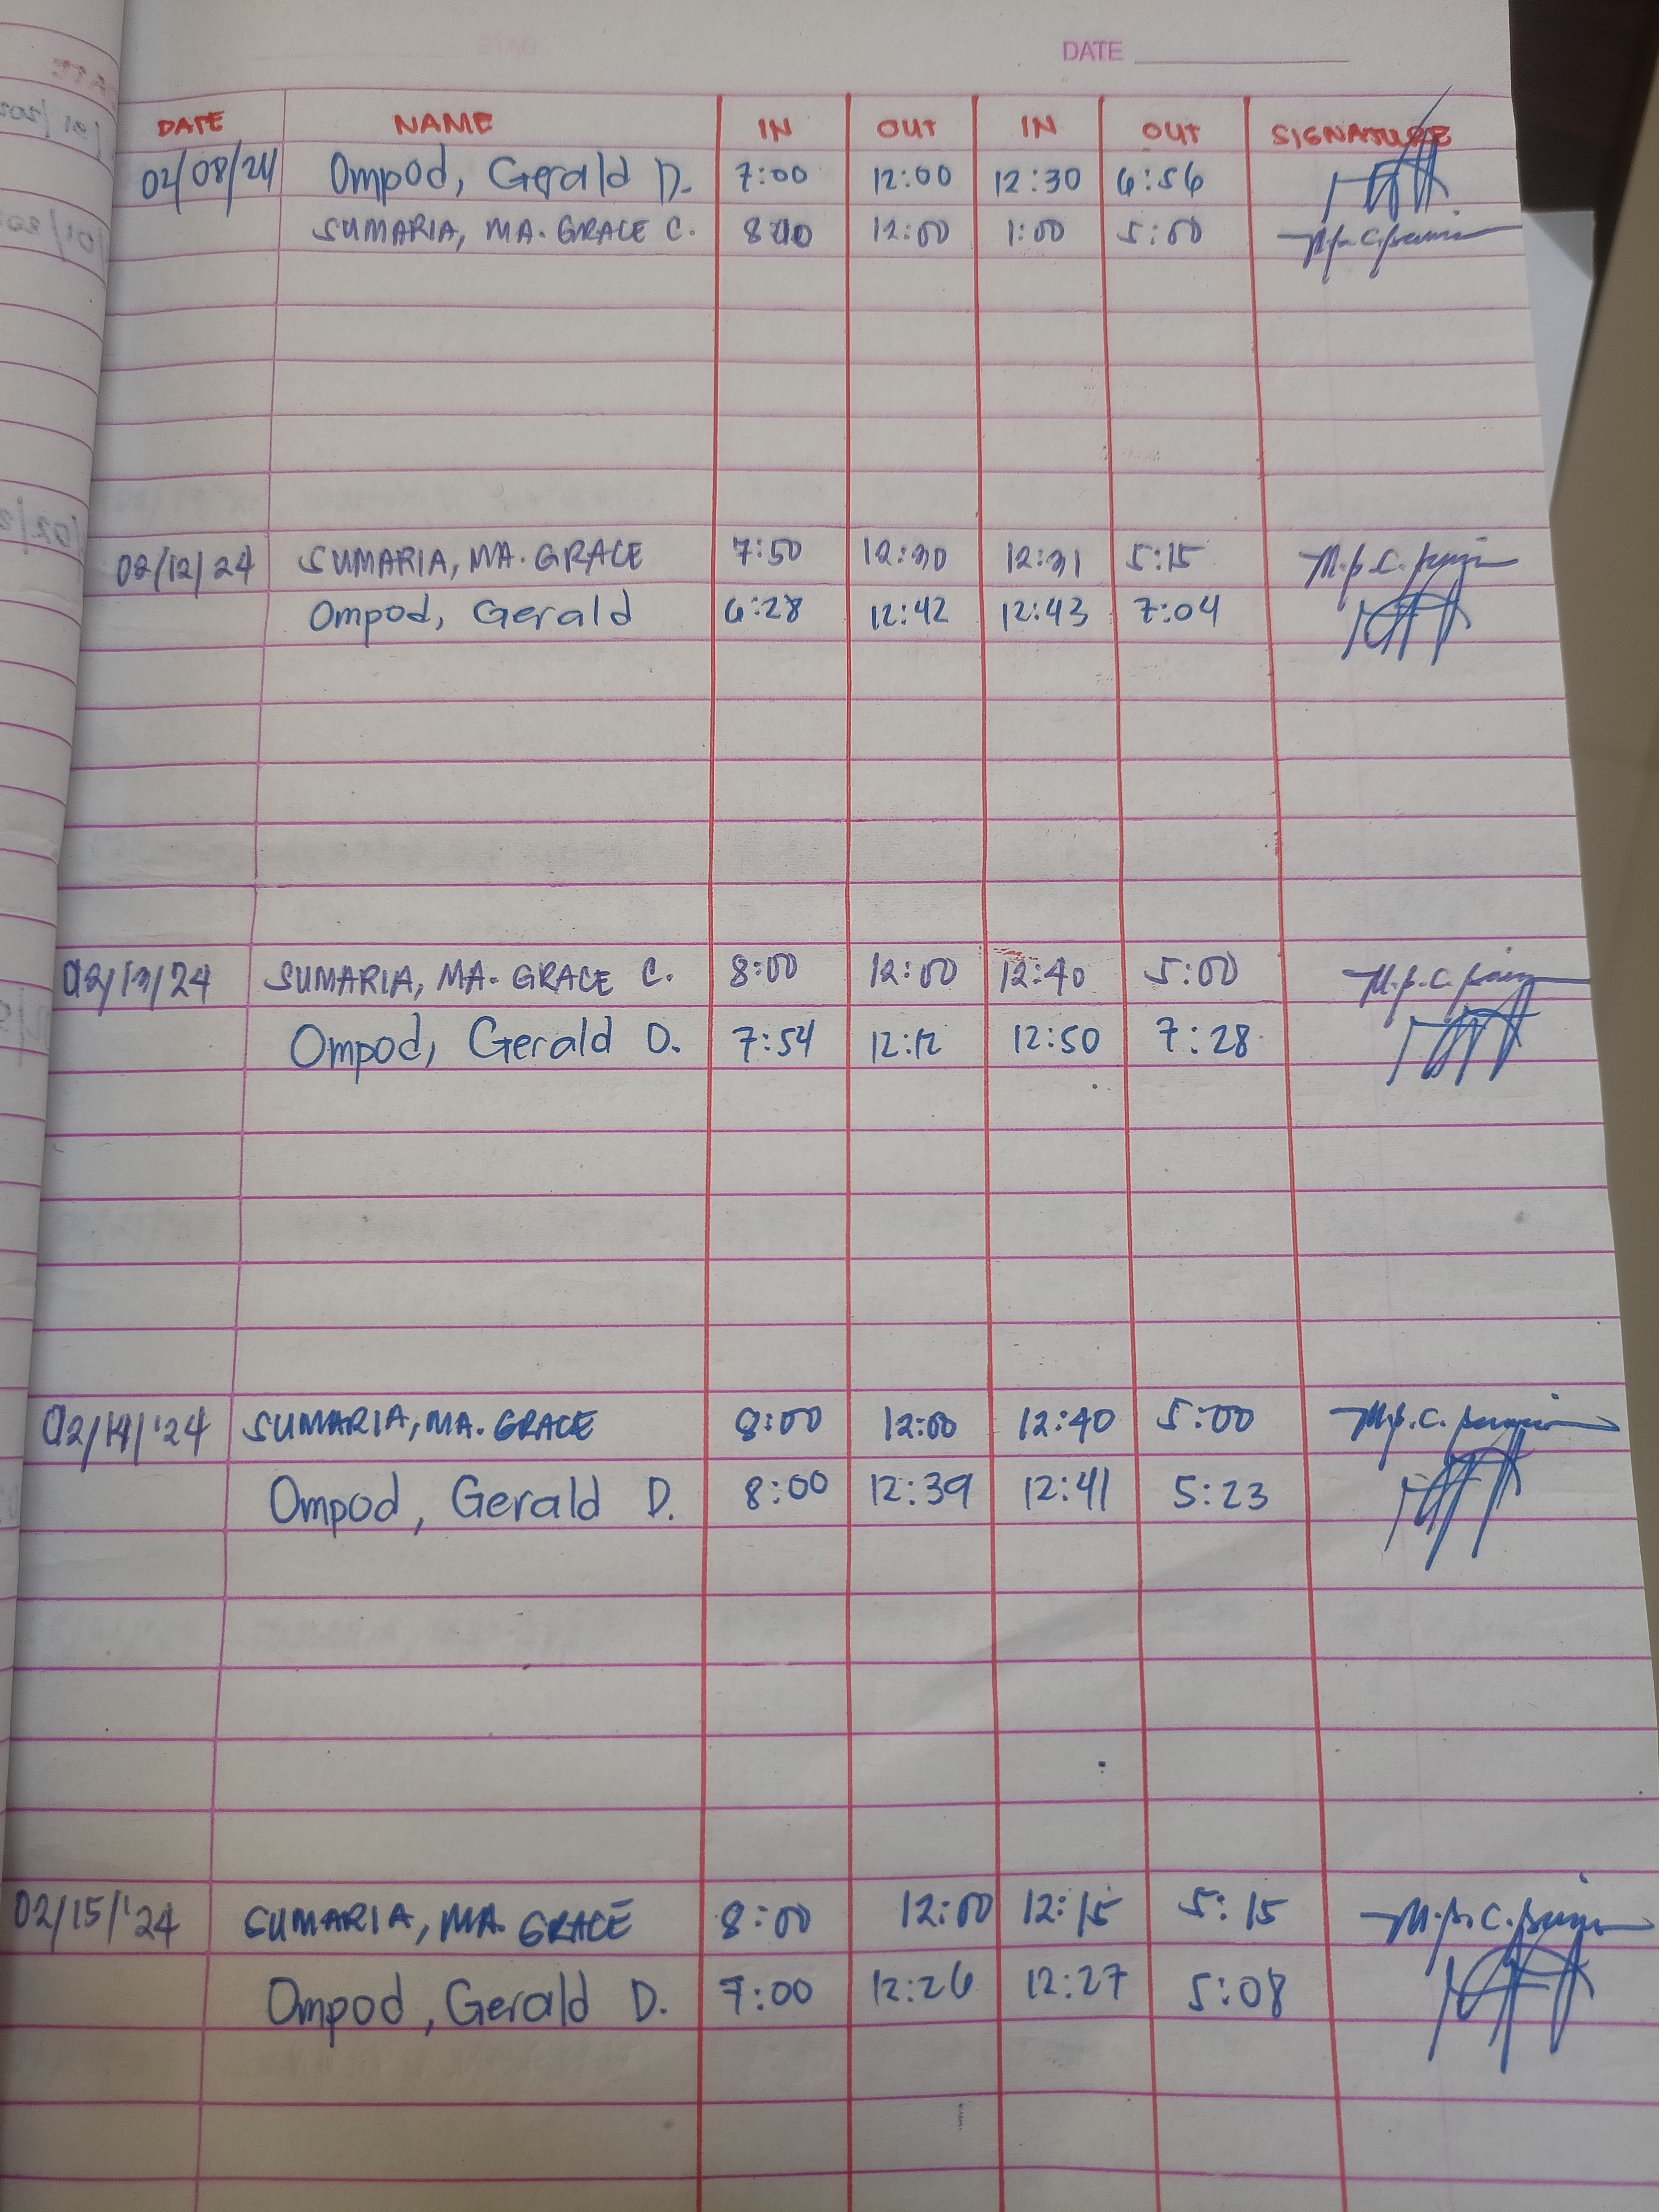 DATE
DATE NAME IN OUT IN OUT SIGNATURE
02/08/24 Ompod, Gerald D. 7:00 12:00 12:30 6:56
SUMARIA, MA. GRACE C. 12:00 1:00 5:00
02/12/24 SUMARIA, MA. GRACE 7:50 12:30 12:31 5:15
Ompod, Gerald 6:28 12:42 12:43 7:04
02/13/24 SUMARIA, MA. GRACE C. 8:00 12:00 12:40 5:00
Ompod, Gerald D. 7:54 12:12 12:50 7:28
02/14/'24 SUMARIA, MA. GRACE 8:00 12:00 12:40 5:00
Ompod, Gerald D. 8:00 12:39 12:41 5:23
02/15/'24 SUMARIA, MA. GRACE 8:00 12:00 12:15 5:15
Ompod, Gerald D. 7:00 12:26 12:27 5:08